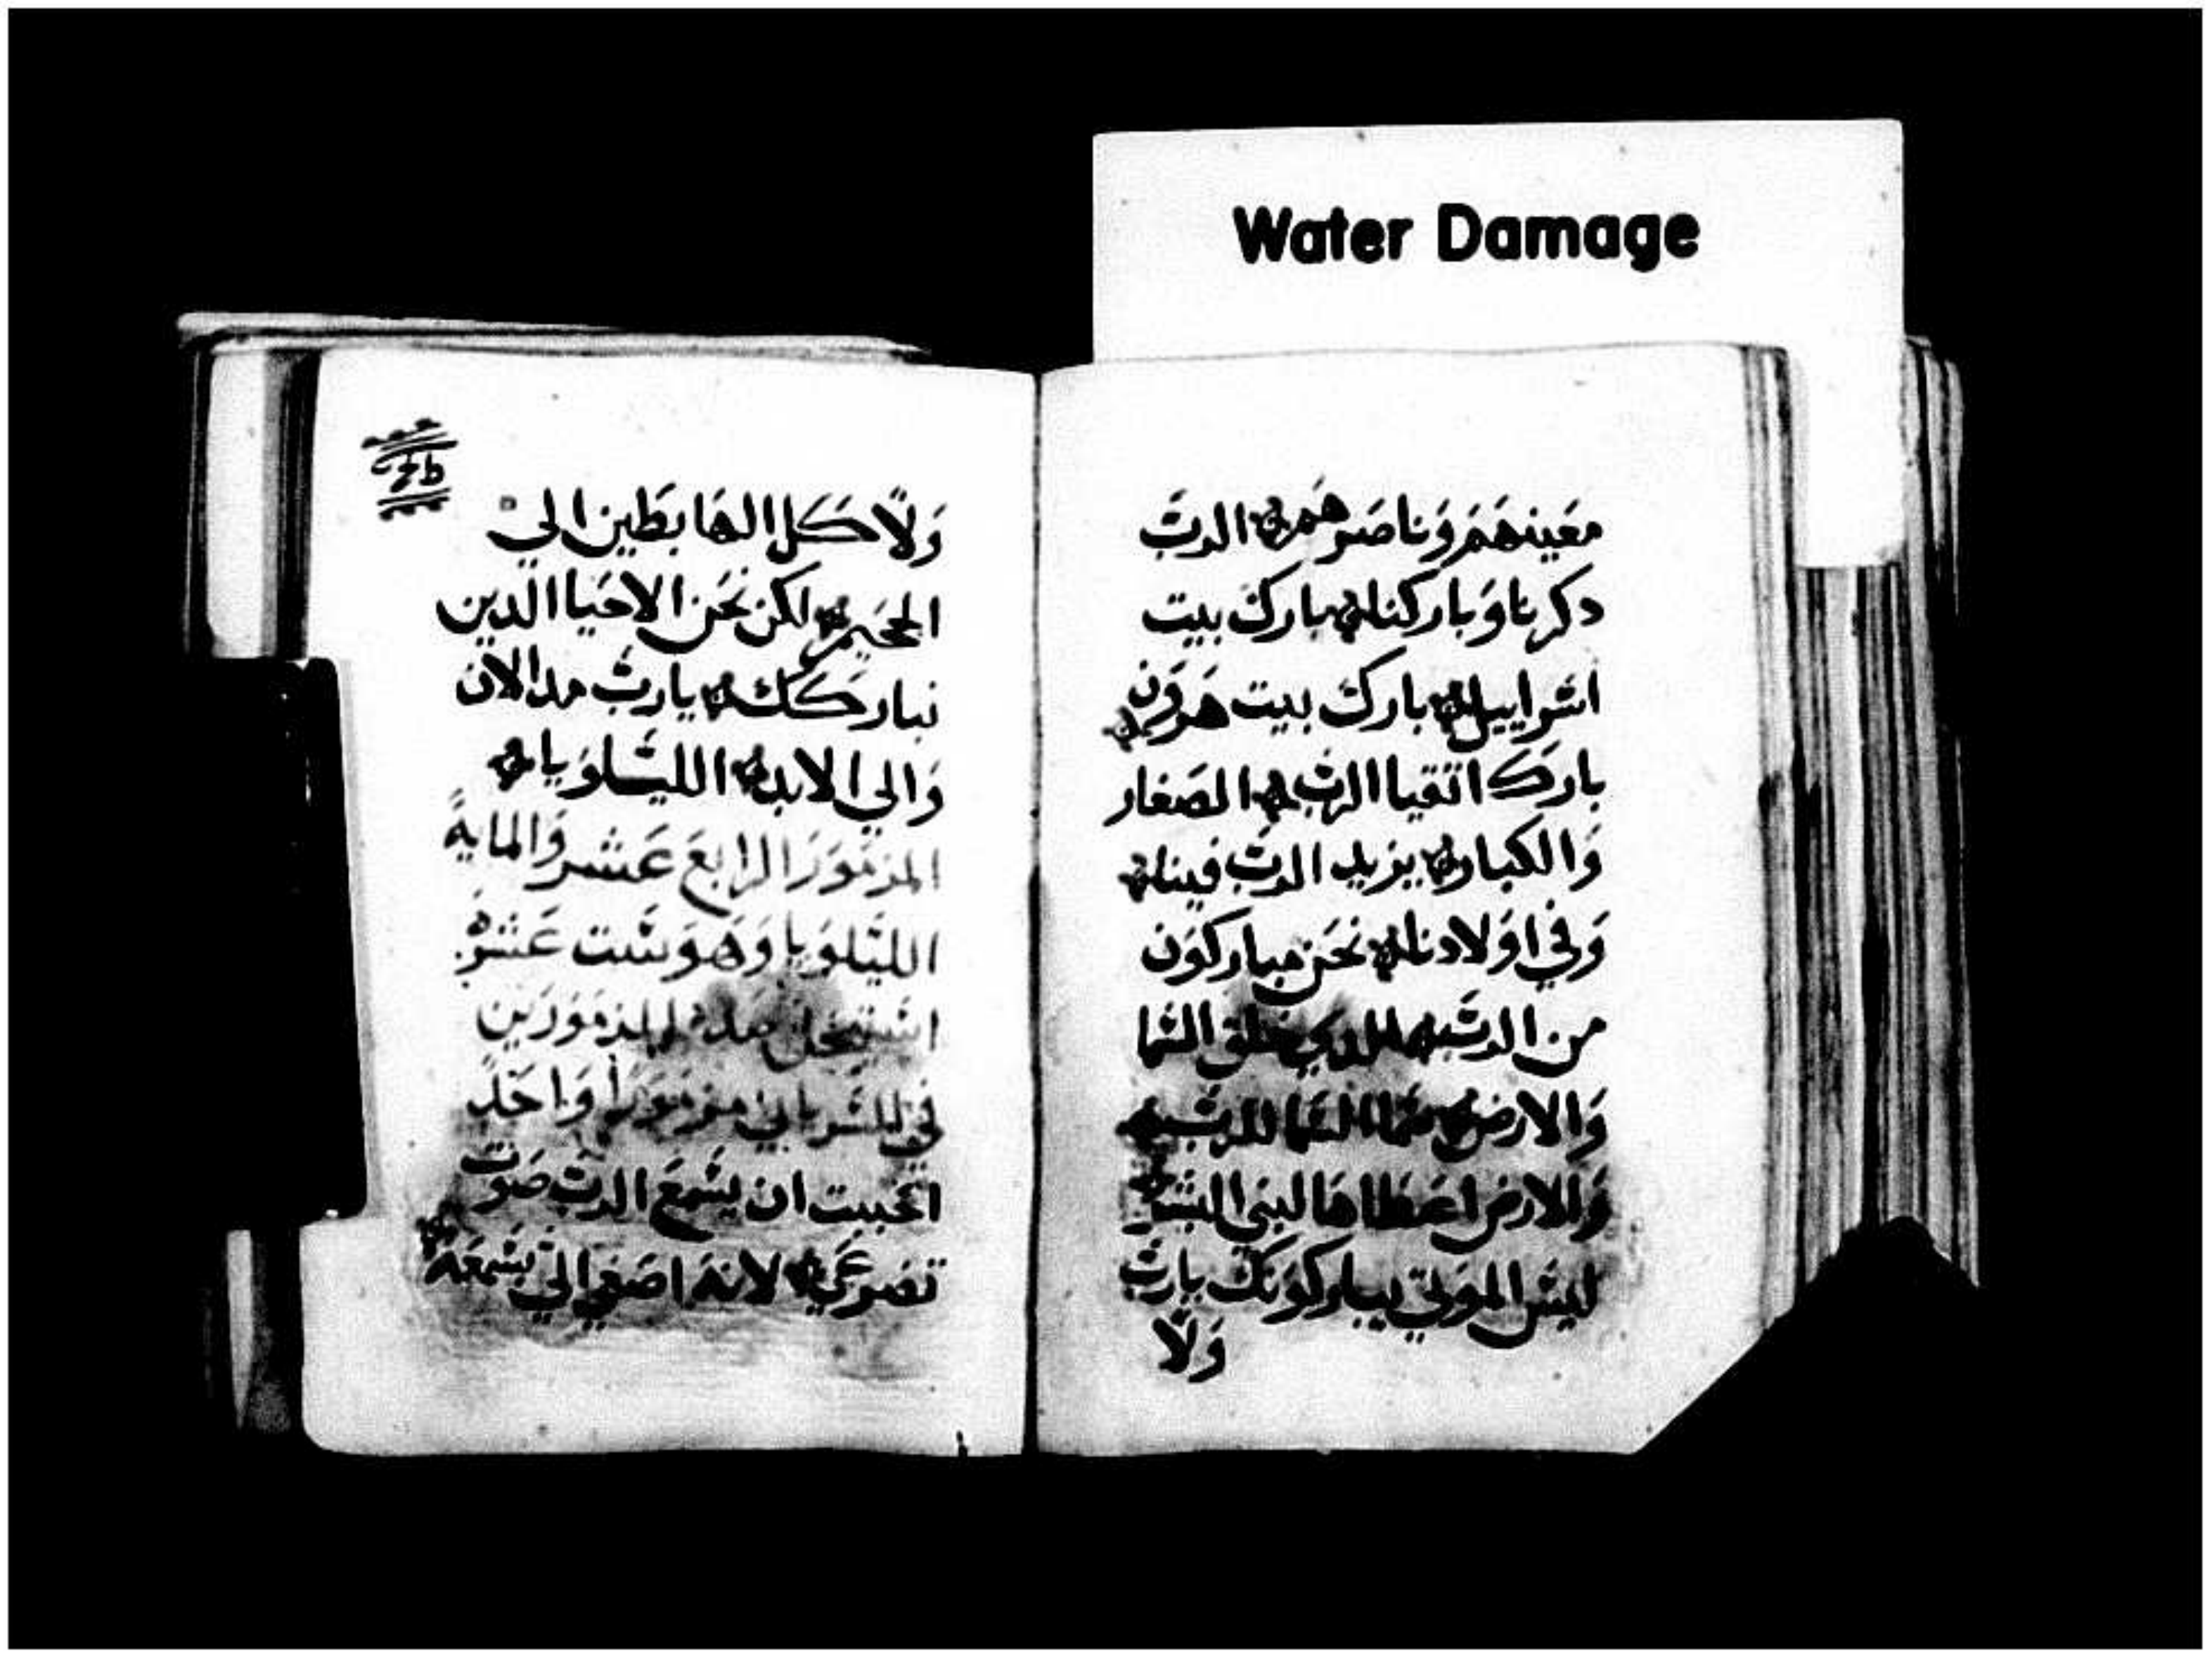 Water Damage
معينهم وناصرهم الرب
دكرنا وباركنا بارك بيت
اسراييل بارك بيت هرون
بارك اتقيا الرب الصغار
والكبار يزيد الرب فينا
وفي اولادنا نحن مباركون
من الرب الدي خلق السما
والارض سما السما للرب
والارض اعطاها لبني البشر
ليس الموتي يباركونك يارب
ولا
ولا كل الهابطين الي
الجحيم لكن نحن الاحيا الدين
نباركك يارب مند الان
والي الابد الليلويا
المزمور الرابع عشر والماية
الليلويا وهو ست عشر
استيخن هده المزمورين
في السرياني مزمورا واحد
احببت ان يسمع الرب صوت
تضرعي لانه اصغي الي بسمعه